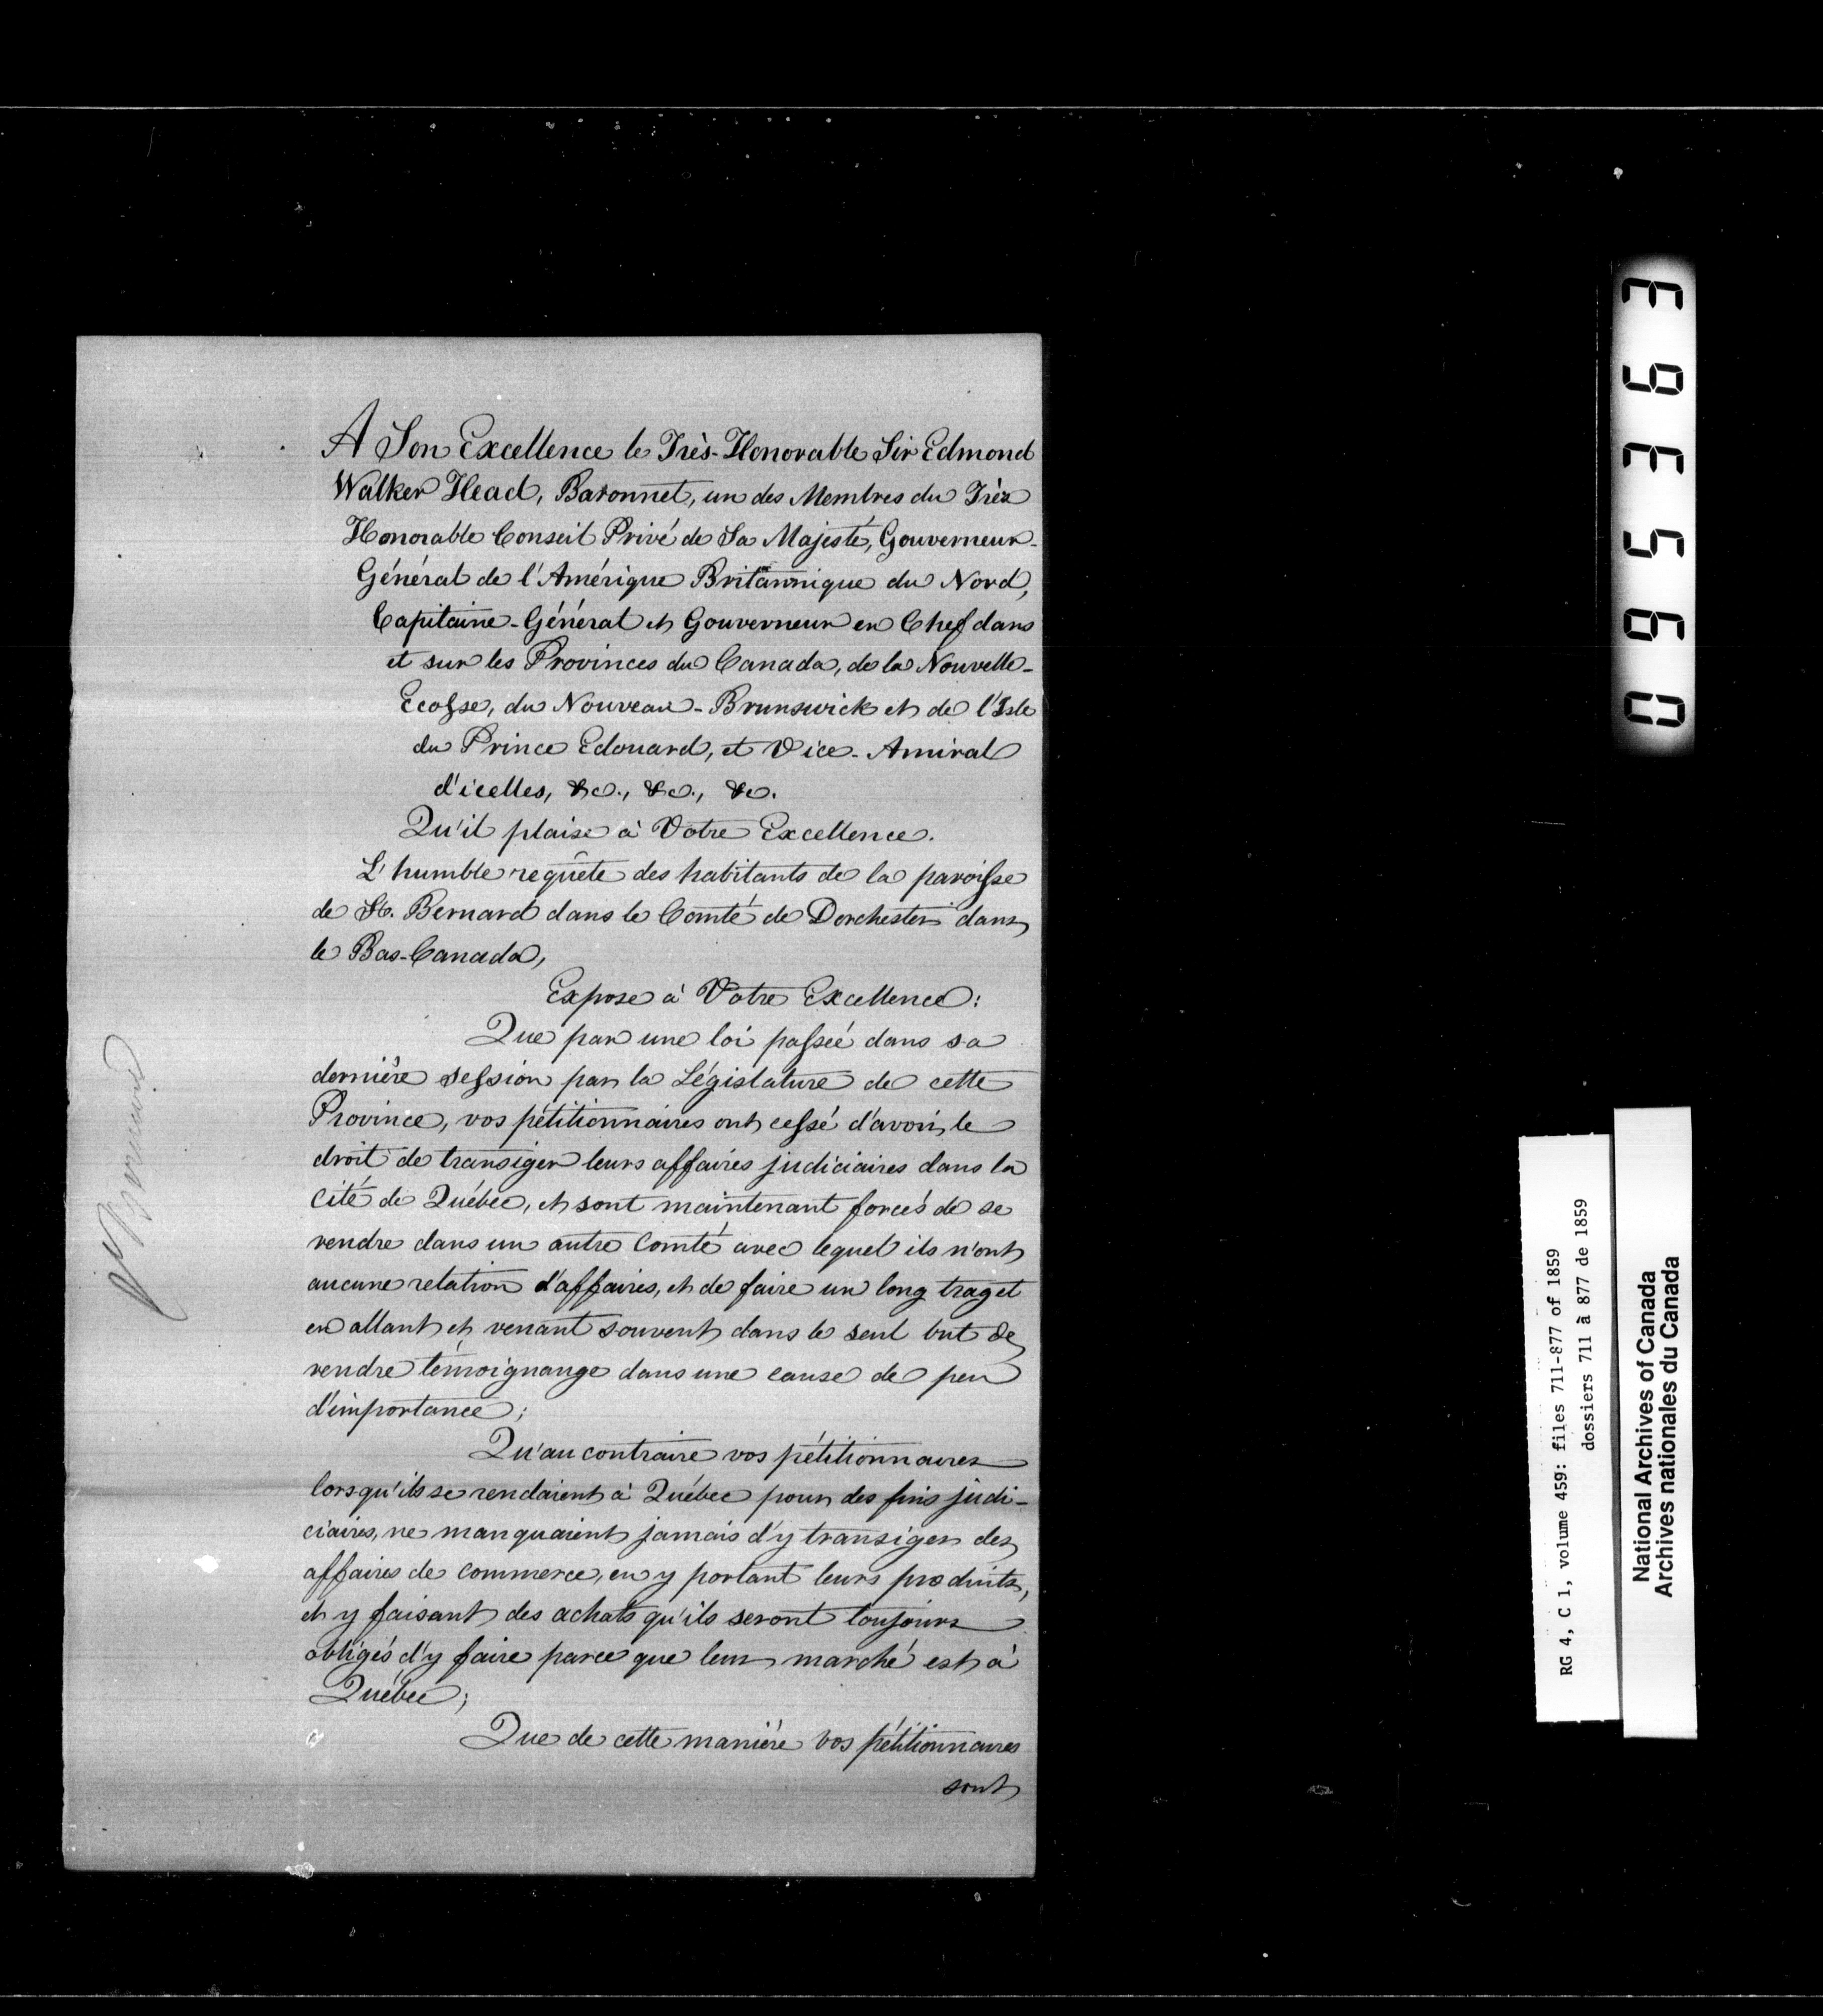 A Son Excellence le Très-Honorable Sir Edmond
Walker Head, Baronnet, un des Membres du Très
Honorable Conseil Privé de Sa Majesté, Gouverneur-
Général de l'Amérique Britannique du Nord,
Capitaine-Général et Gouverneur en Chef dans
et sur les Provinces du Canada, de la Nouvelle-
Ecosse, du Nouveau-Brunswick et de l'Isle
du Prince Edouard, et Vice-Amiral
d'icelles, &c., &c., &c.
Qu'il plaise à Votre Excellence.
L'humble requête des habitants de la paroisse
de St. Bernard dans le Comté de Dorchester dans
le Bas-Canada,
Expose à Votre Excellence:
Que par une loi passée dans sa
dernière session par la Législature de cette
Province, vos pétitionnaires ont cessé d'avoir le
droit de transiger leurs affaires judiciaires dans la
Cité de Québec, et sont maintenant forcés de se
rendre dans un autre Comté avec lequel ils n'ont
aucune relation d'affaires, et de faire un long traget
en allant et venant souvent dans le seul but de
rendre témoignange dans une cause de peu
d'importance;
Qu'au contraire vos pétitionnaires
lorsqu'ils se rendaient à Québec pour des fins judi-
ciaires, ne manquaient jamais d'y transiger des
affaires de commerce, en y portant leurs produits,
et y faisant des achats qu'ils seront toujours
obligés d'y faire parce que leur marché est à
Québec;
Que de cette manière vos pétitionnaires
sont
St Bernard
095363
RG 4, C 1, volume 459: files 711-877 of 1859
dossiers 711 à 877 de 1859
National Archives of Canada
Archives nationales du Canada